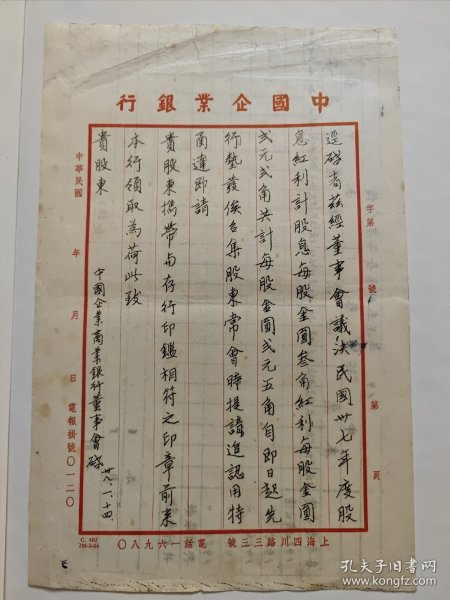 中國企業銀行
字第 號
第 頁
逕啓者茲經董事會議決民國卅七年度股
息紅利計股息每股金圓叁角紅利每股金圓
弍元弍角共計每股金圓弍元五角自即日起先
行墊發俟召集股東常會時提請追認用特
函達即請
貴股東攜帶与存行印鑑相符之印章前来
本行領取為荷此致
貴股東
中國企業商業銀行董事會啓
卅八、一、十四
中華民國 年 月 日
電報掛號〇一二〇
上海四川路三三號 電話一六九八〇
C. 402
孔夫子旧书网